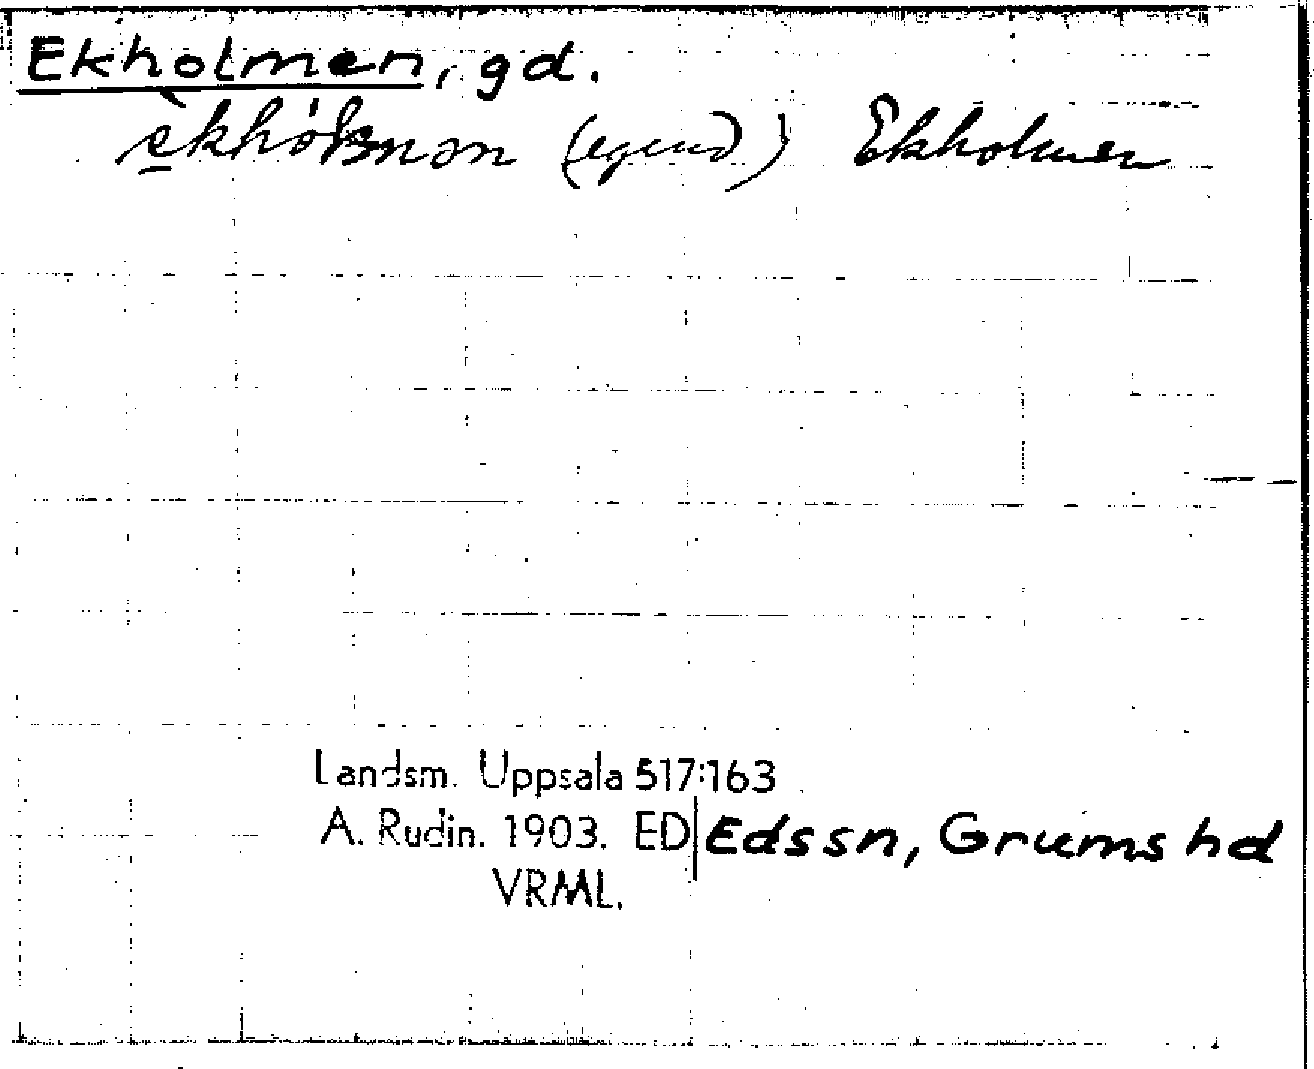 Ekholmen, gd.
(egend) Ekholmen
Landsm. Uppsala 517:163
A. Rudin. 1903. ED Edssn, Grums hd
VRML.